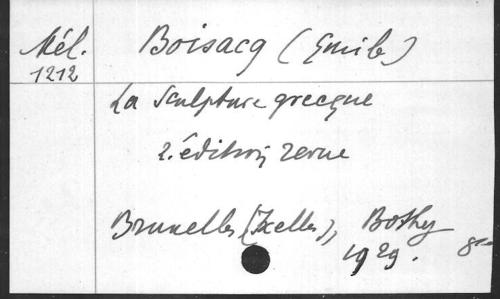 Mél.
1212
Boisacq (Emile)
La Sculpture grecque
2. édition revue
Bruxelles (Ixelles), Bothy
1929. 8°